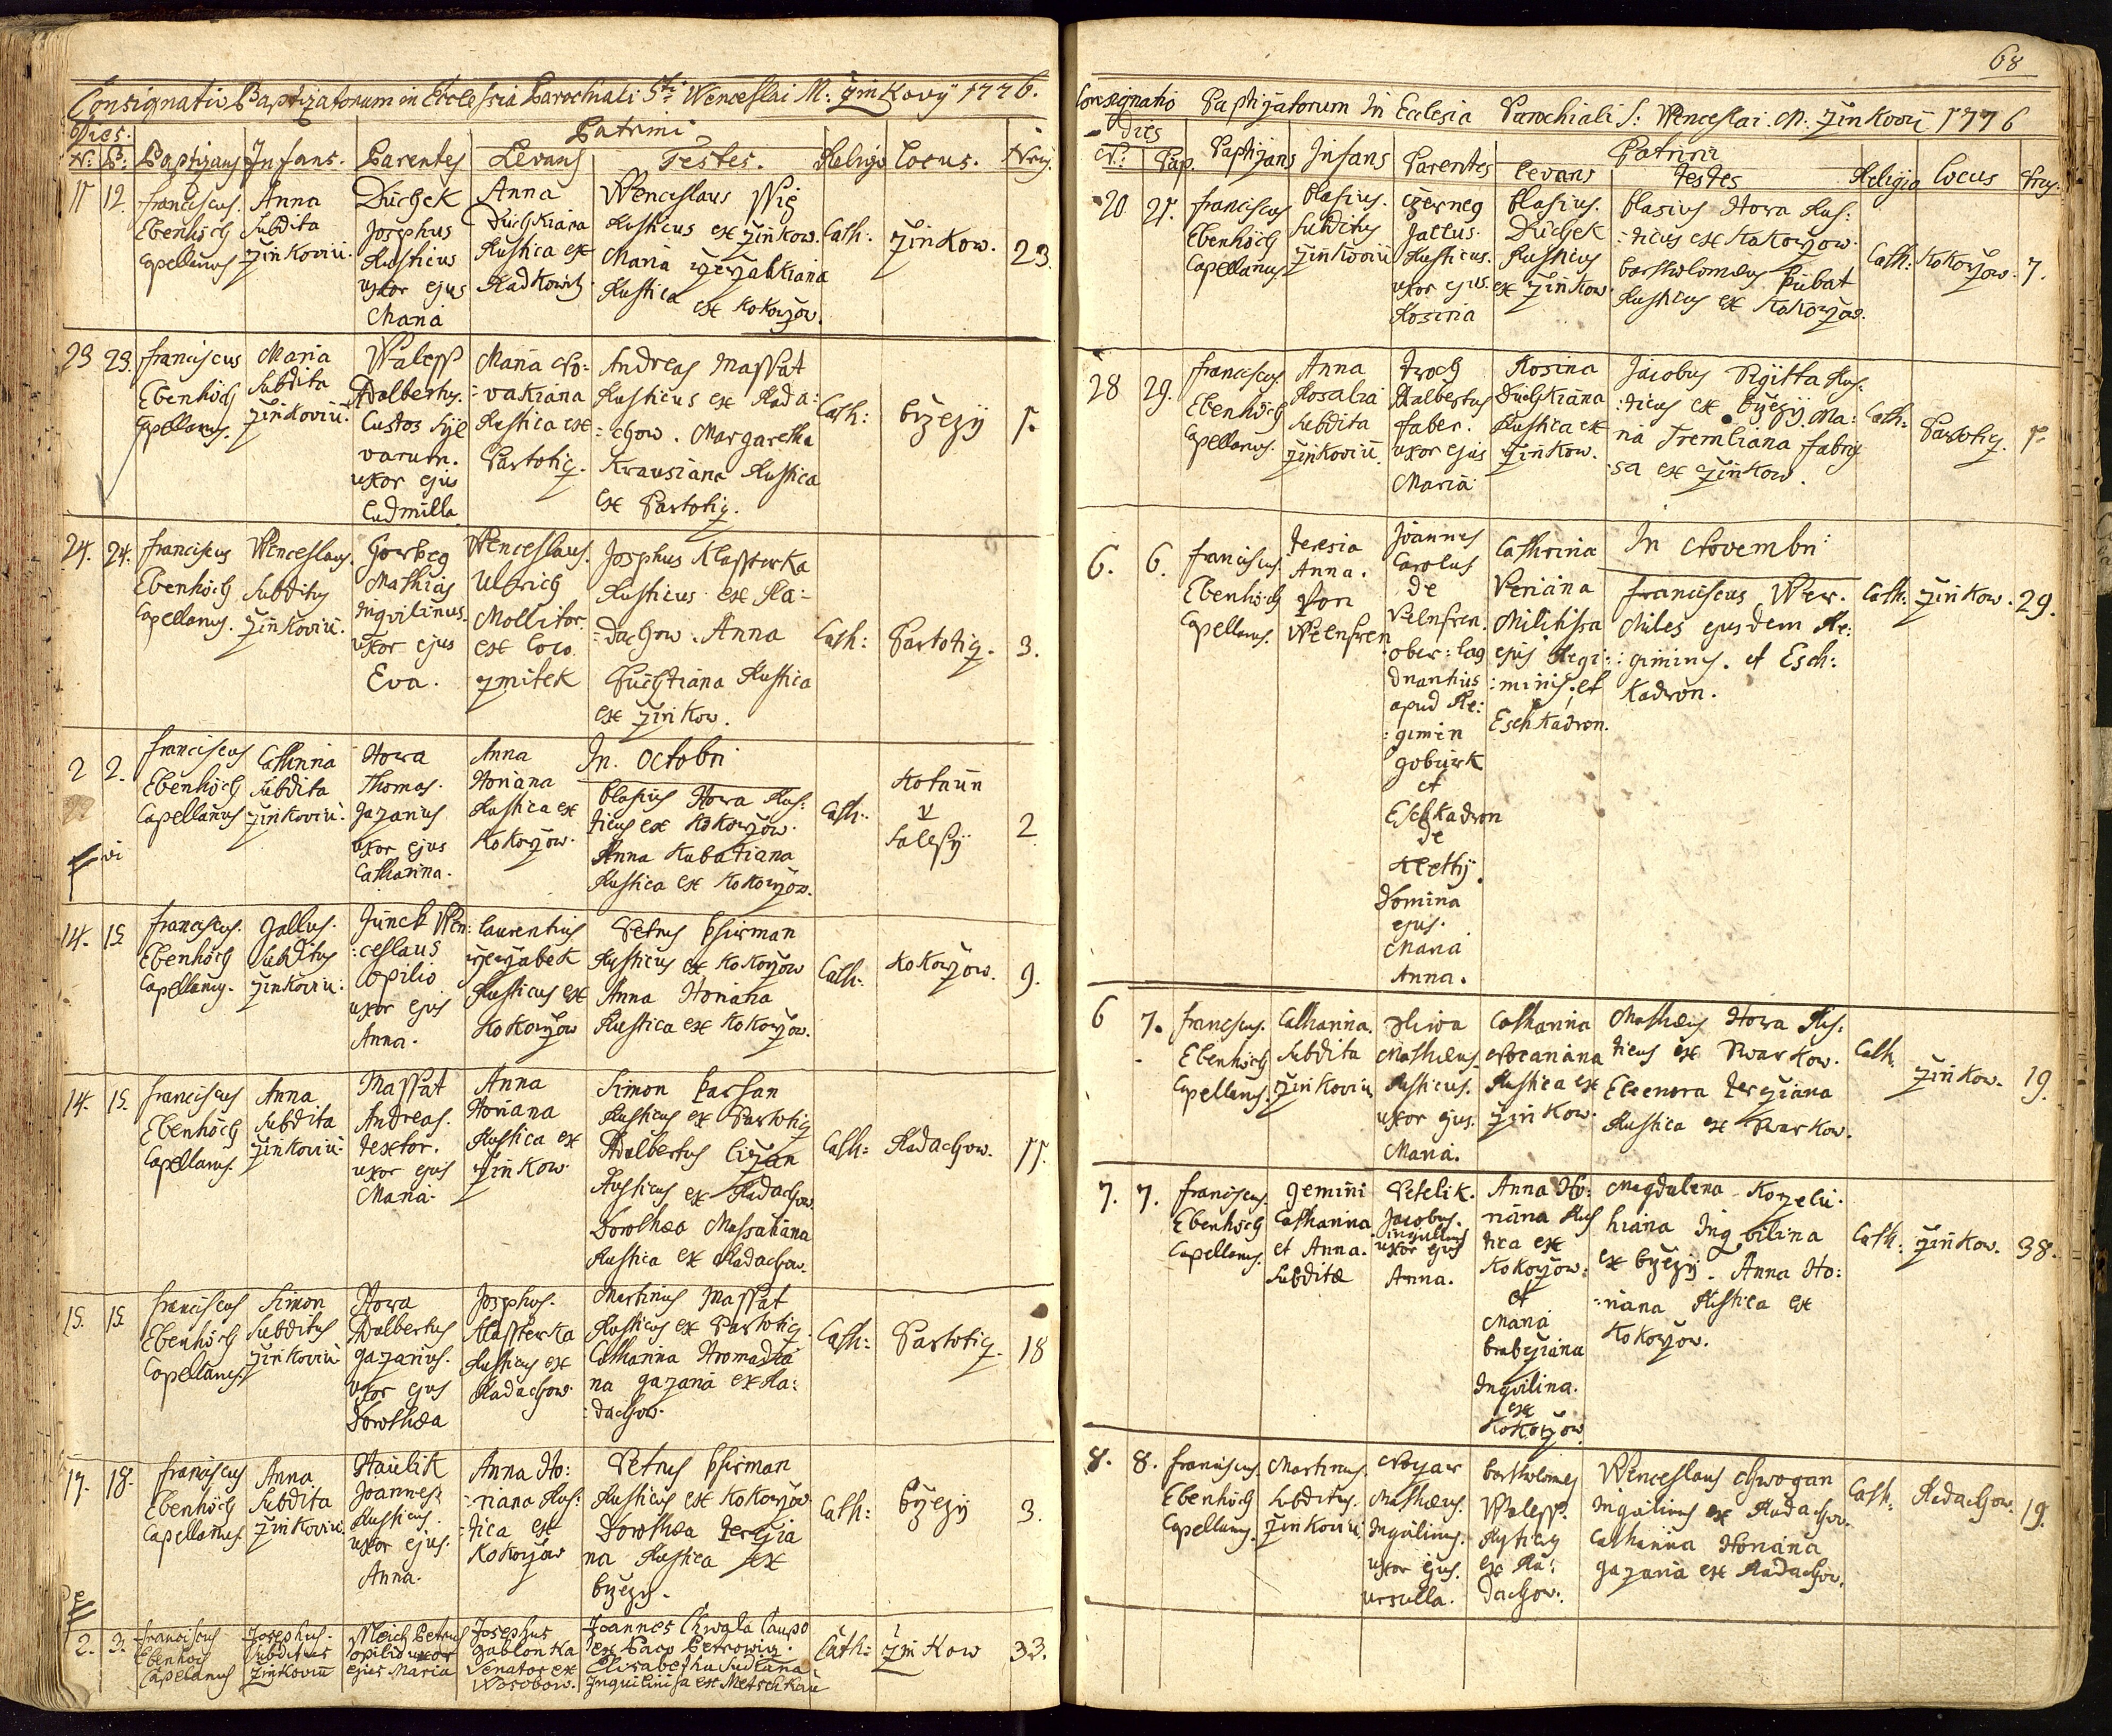 Consignatio Baptizatorum in Ecclesia Parochiali Sti Wenceslai M: Žinkovij 1776.
Dies. Patrini
N: B: Baptizans Infans. Parentes Levans Testes. Religio Locus. Nrus.
11 12. Franciscus Ebenhöch Capellanus
Anna Subdita Žinkoviii.
Duchek Josephus Rusticus uxor ejus Maria
Anna Duchkiana Rustica ex Radkowitz
Wenceslaus Wig Rusticus ex Žinkow.
Maria Rustica ex Kokorzow.
Cath: Žinkow. 23.
23 23. Franciscus Ebenhöch Capellanus.
Maria Subdita Žinkoviii.
Waless Adalbertus. Custos Sylvarum. uxor ejus Ludmilla.
Maria Novakiana Rustica ex Partotiz.
Andreas Massat Rusticus ex Radachow. Margaretha
Krausiana Rustica ex Partotiz.
Cath: Brzezy 1.
24. 24. Franciscus Ebenhöch Capellanus.
Wenceslaus. Subditus Žinkoviii.
Mathias Inqvilinus. uxor ejus Eva.
Wenceslaus. Ulbrich Mollitor. ex loco Zmitek
Josephus Klassterka Rusticus ex Radachow. Anna
Rustica ex Žinkow.
Cath: Partotiz. 3.
2 2. Franciscus Ebenhöch Capellanus
Catharina Subdita Žinkoviii.
Hora Thomas. Gazarius uxor ejus Catharina.
Anna Horiana Rustica ex Kokorzow.
In Octobri
Blasius Hora Rusticus ex Kokorzow.
Anna Kubatiana Rustica ex Kokorzow.
Cath: 2
14. 15. Franciscus. Ebenhöch Capellanus.
Gallus. Subditus Žinkoviii.
Junek Wenceslaus Opilio uxor ejus Anna.
Laurentius Rusticus ex Kokorzow
Petrus Rusticus ex Kokorzow
Anna Horiana Rustica ex Kokorzow.
Cath: Kokorzow. 9.
14. 15. Franciscus Ebenhöch Capellanus.
Anna Subdita Žinkoviii.
Massat Andreas. Textor. uxor ejus Maria.
Anna Horiana Rustica ex Žinkow.
Simon Rusticus ex Partotiz
Adalbertus Rusticus ex Radachow
Dorothea Massatiana Rustica ex Radachow.
Cath: Radachow. 11.
15. 15. Franciscus Ebenhöch Capellanus.
Simon Subditus Žinkoviii
Hora Adalbertus Gazarius. uxor ejus Dorothea
Josephus. Klassterka Rusticus ex Radachow.
Martinus Massat Rusticus ex Partotiz.
Catharina Gazaria ex Radachow.
Cath: Partotiz. 18
17. 18. Franciscus Ebenhöch Capellanus.
Anna Subdita Žinkoviii.
Haulik Joannes. Rusticus. uxor ejus. Anna.
Anna Horiana Rustica ex Kokorzow
Petrus Rusticus ex Kokorzow.
Dorothea Rustica ex Brzezy.
Cath: Brzezy 3.
2. 3. Franciscus Ebenhöch Capelanus
Josephus. Subditus Žinkoviii
Petrus opilio uxor ejus Maria
Josephus Jablonka Senator ex
Joannes Chwala Caupo ex Pago Petrowiz.
Elisabetha Inquilinisa ex
Cath: Žinkow 33.
68
Consignatio Baptizatorum In Ecclesia Parochiali S: Wenceslai. M: Žinkovii 1776
Dies Patrini
N: Bap. Baptizans Infans Parentes Levans Testes Religio Locus Nrus:
20 21. Franciscus Ebenhöch Capellanus.
Blasius. Subditus Žinkoviii
Gallus. Rusticus. uxor ejus. Rosina
Blasius. Duchek Rusticus ex Žinkow.
Blasius Hora Rusticus ex Kokorzow.
Bartholomeus Rusticus ex Kokorzow.
Cath: Kokorzow. 7.
28 29. Franciscus. Ebenhöch Capellanus.
Anna Rosalia Subdita Žinkoviii.
Adalbertus Faber. uxor ejus Maria
Rosina Duchkiana Rustica ex Žinkow.
Jacobus Rusticus ex Brzezy. Maria ex Žinkow.
Cath: Partotiz. 1.
6. 6. Franciscus. Ebenhöch Capellanus.
Teresia Anna. Von Welnfren
Joannes Carolus de Velnfren. apud Regimen et Eschkadron de Domina ejus. Maria Anna.
Cathrina Militissa ejus Regiminis, et Eschkadron.
In Novembri
Franciscus Wer. Miles ejusdem Regiminis. et Eschkadron.
Cath: Žinkow. 29.
6 7. Franciscus. Ebenhöch Capellanus.
Catharina. Subdita Žinkoviii
Mathæus Rusticus. uxor ejus. Maria.
Catharina Rustica ex Žinkow.
Mathæus Hora Rusticus ex
Eleonora Rustica ex
Cath. Žinkow. 19.
7. 7. Franciscus. Ebenhöch Capellanus.
Gemini Catharina et Anna. Subditæ
Petelik. Jacobus. inquilinus uxor ejus Anna.
Anna Horiana Rustica ex Kokorzow: et Maria Inqvilina. ex Kokorzow.
Magdalena Inqvilina ex Brzezy. Anna Horiana Rustica ex Kokorzow.
Cath: Žinkow. 38.
8. 8. Franciscus. Ebenhöch Capellanus.
Martinus. Subditus. Žinkoviii.
Mathæus. Inquilinus. uxor ejus. Ursulla.
Bartholomeus Waless. Rusticus ex Radachow.
Wenceslaus Inquilinus ex Radachow.
Catharina Horiana Gazaria ex Radachow.
Cath: Radachow. 19.